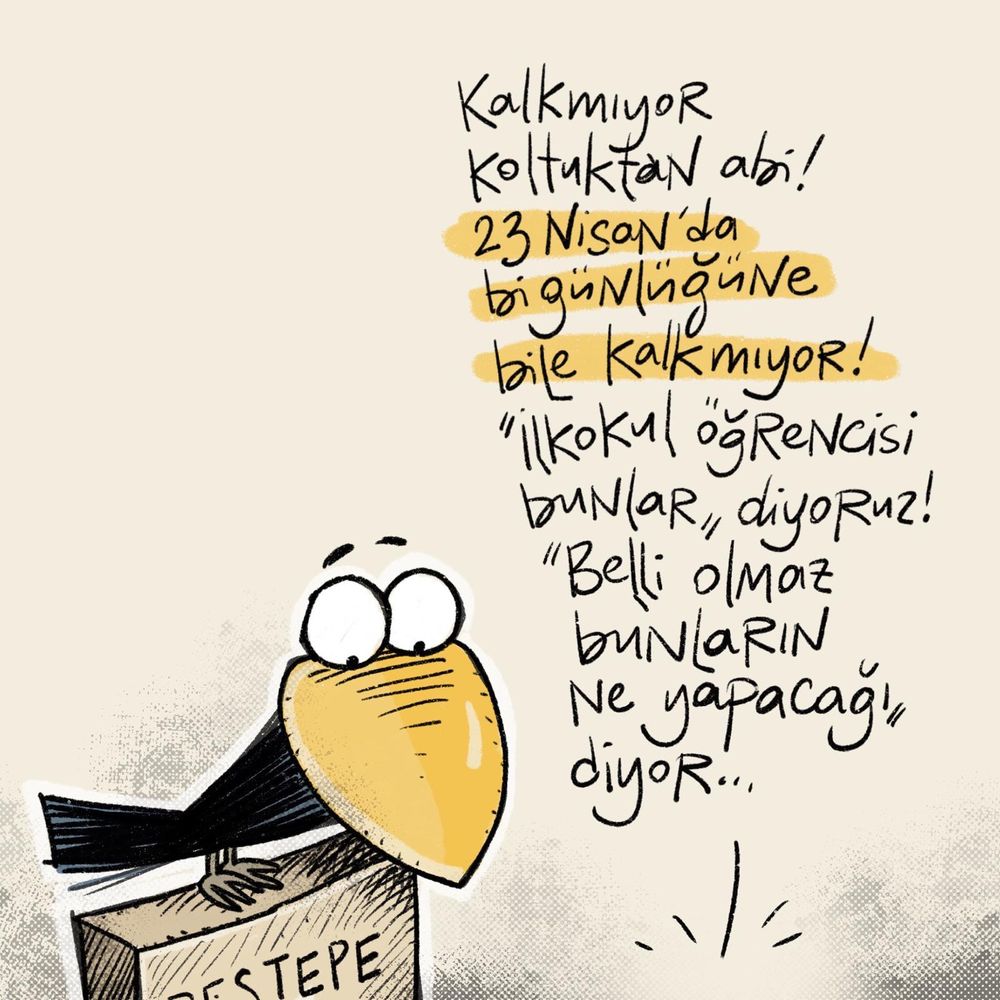 Kalkmıyor
koltuktan abi!
23 Nisan'da
bi günlüğüne
bile kalkmıyor!
"İlkokul öğrencisi
bunlar„ diyoruz!
"Belli olmaz
bunların
ne yapacağı„
diyor...
BESTEPE